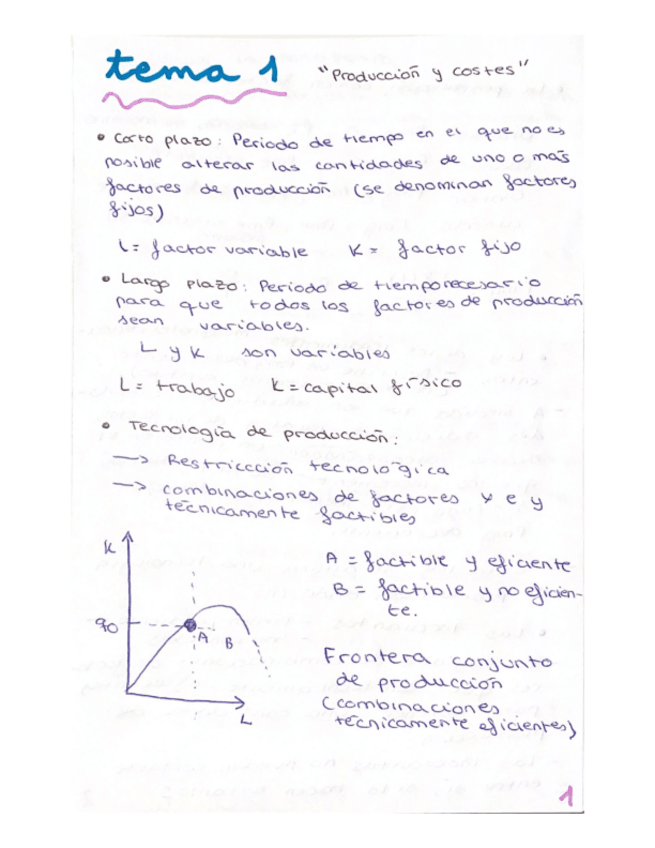 tema 1 "Producción y costes"
• Corto plazo: Periodo de tiempo en el que no es
posible alterar las cantidades de uno o más
factores de producción (se denominan factores
fijos)
L= factor variable K= factor fijo
• Largo plazo: Periodo de tiempo necesario
para que todos los factores de producción
sean variables.
L y K son variables
L= trabajo K= capital físico
• Tecnología de producción:
—> Restriccción tecnológica
—> combinaciones de factores x e y
técnicamente factibles
K
A = factible y eficiente
B = factible y no eficien-
te.
q0
A
B
L
Frontera conjunto
de producción
(combinaciones
técnicamente eficientes)
1